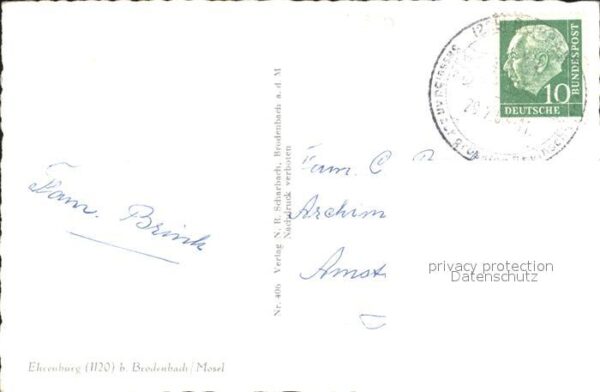 Fam. Brink
Ehrenburg (1120) b. Brodenbach/Mosel
Nr. 406 Verlag N. R. Scharbach, Brodenbach a. d. M
Nachdruck verboten
DEUTSCHE
BUNDESPOST
10
Fam. C
Archim
Amst
privacy protection
Datenschutz